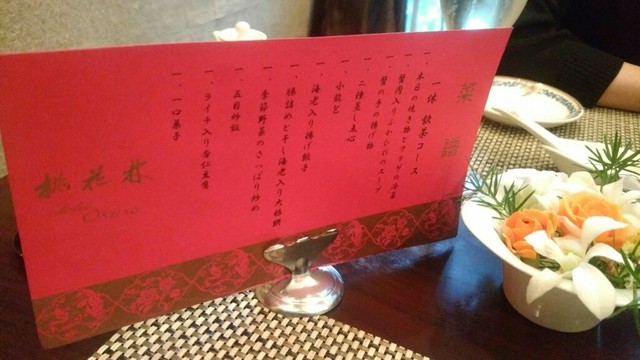 菜譜
一休 飲茶コース
一、本日の焼き物とクラゲの冷菜
一、蟹肉入りふかひれのスープ
一、蟹の手の揚げ物
一、二種蒸し点心
一、小籠包
一、海老入り揚げ餃子
一、腸詰めと干し海老入り大根餅
一、季節野菜のさっぱり炒め
一、五目炒飯
一、ライチ入り杏仁豆腐
一、一口菓子
桃花林